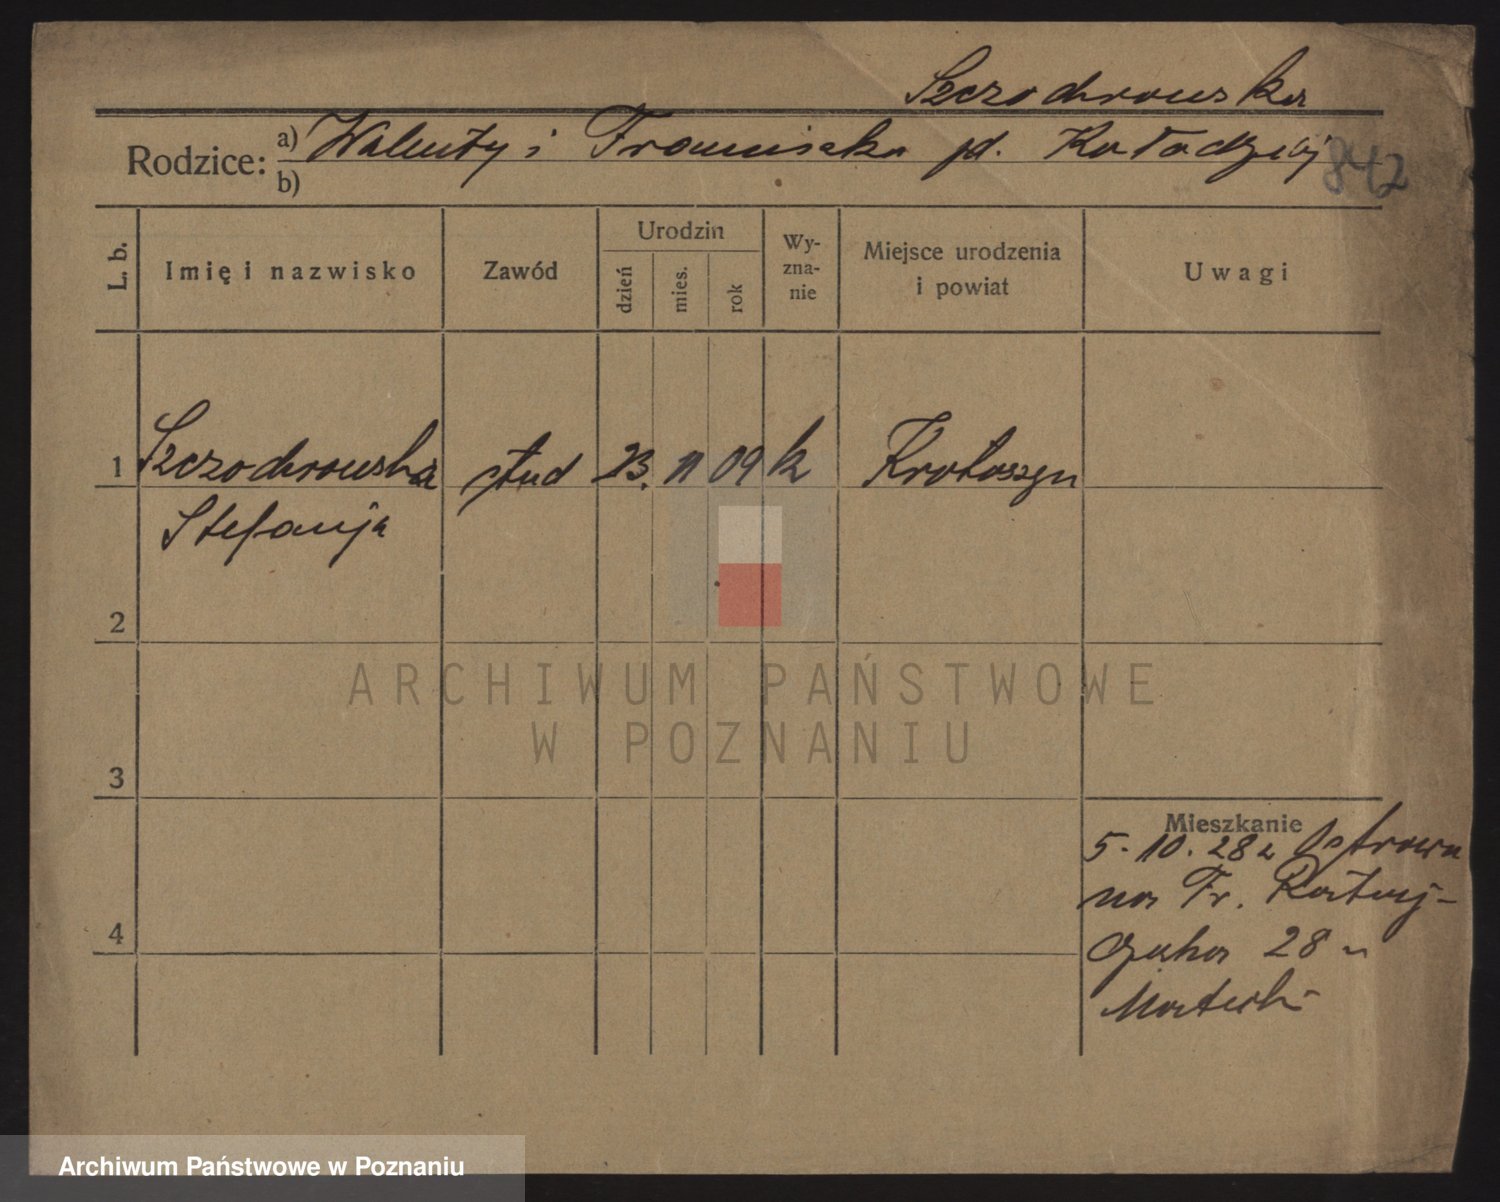 Szczodrowska
Rodzice: a) Walenty i Franciszka pd. Kołodziej
b)
842
L. b.
Imię i nazwisko
Zawód
Urodzin
dzień
mies.
rok
Wy-
zna-
nie
Miejsce urodzenia
i powiat
Uwagi
1 Szczodrowska stud 23. 11 09 k Krotoszyn
Stefanja
2
ARCHIWUM PAŃSTWOWE
W POZNANIU
3
Mieszkanie
5. 10. 28 z Ostrowa
na Fr. Rataj-
czaka 28 u
4
Archiwum Państwowe w Poznaniu